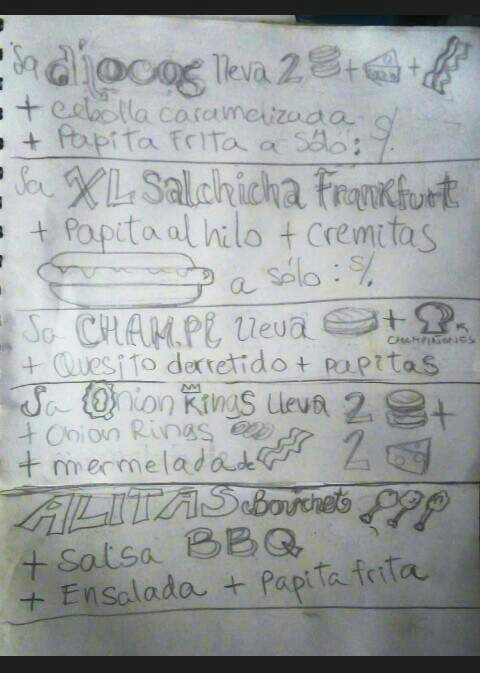 Sa dijocos lleva 2 + +
+ cebolla caramelizada
+ Papita Frita a sólo: S/.
Sa XL Salchicha Frankfurt
+ Papita al hilo + cremitas
a sólo: S/.
Sa CHAM.PI lleva +
CHAMPIÑONES
+ Quesito derretido + papitas
Sa Onion Kings lleva 2 +
+ Onion Rings
+ mermelada de 2
ALITAS
+ Salsa BBQ
+ Ensalada + Papita frita